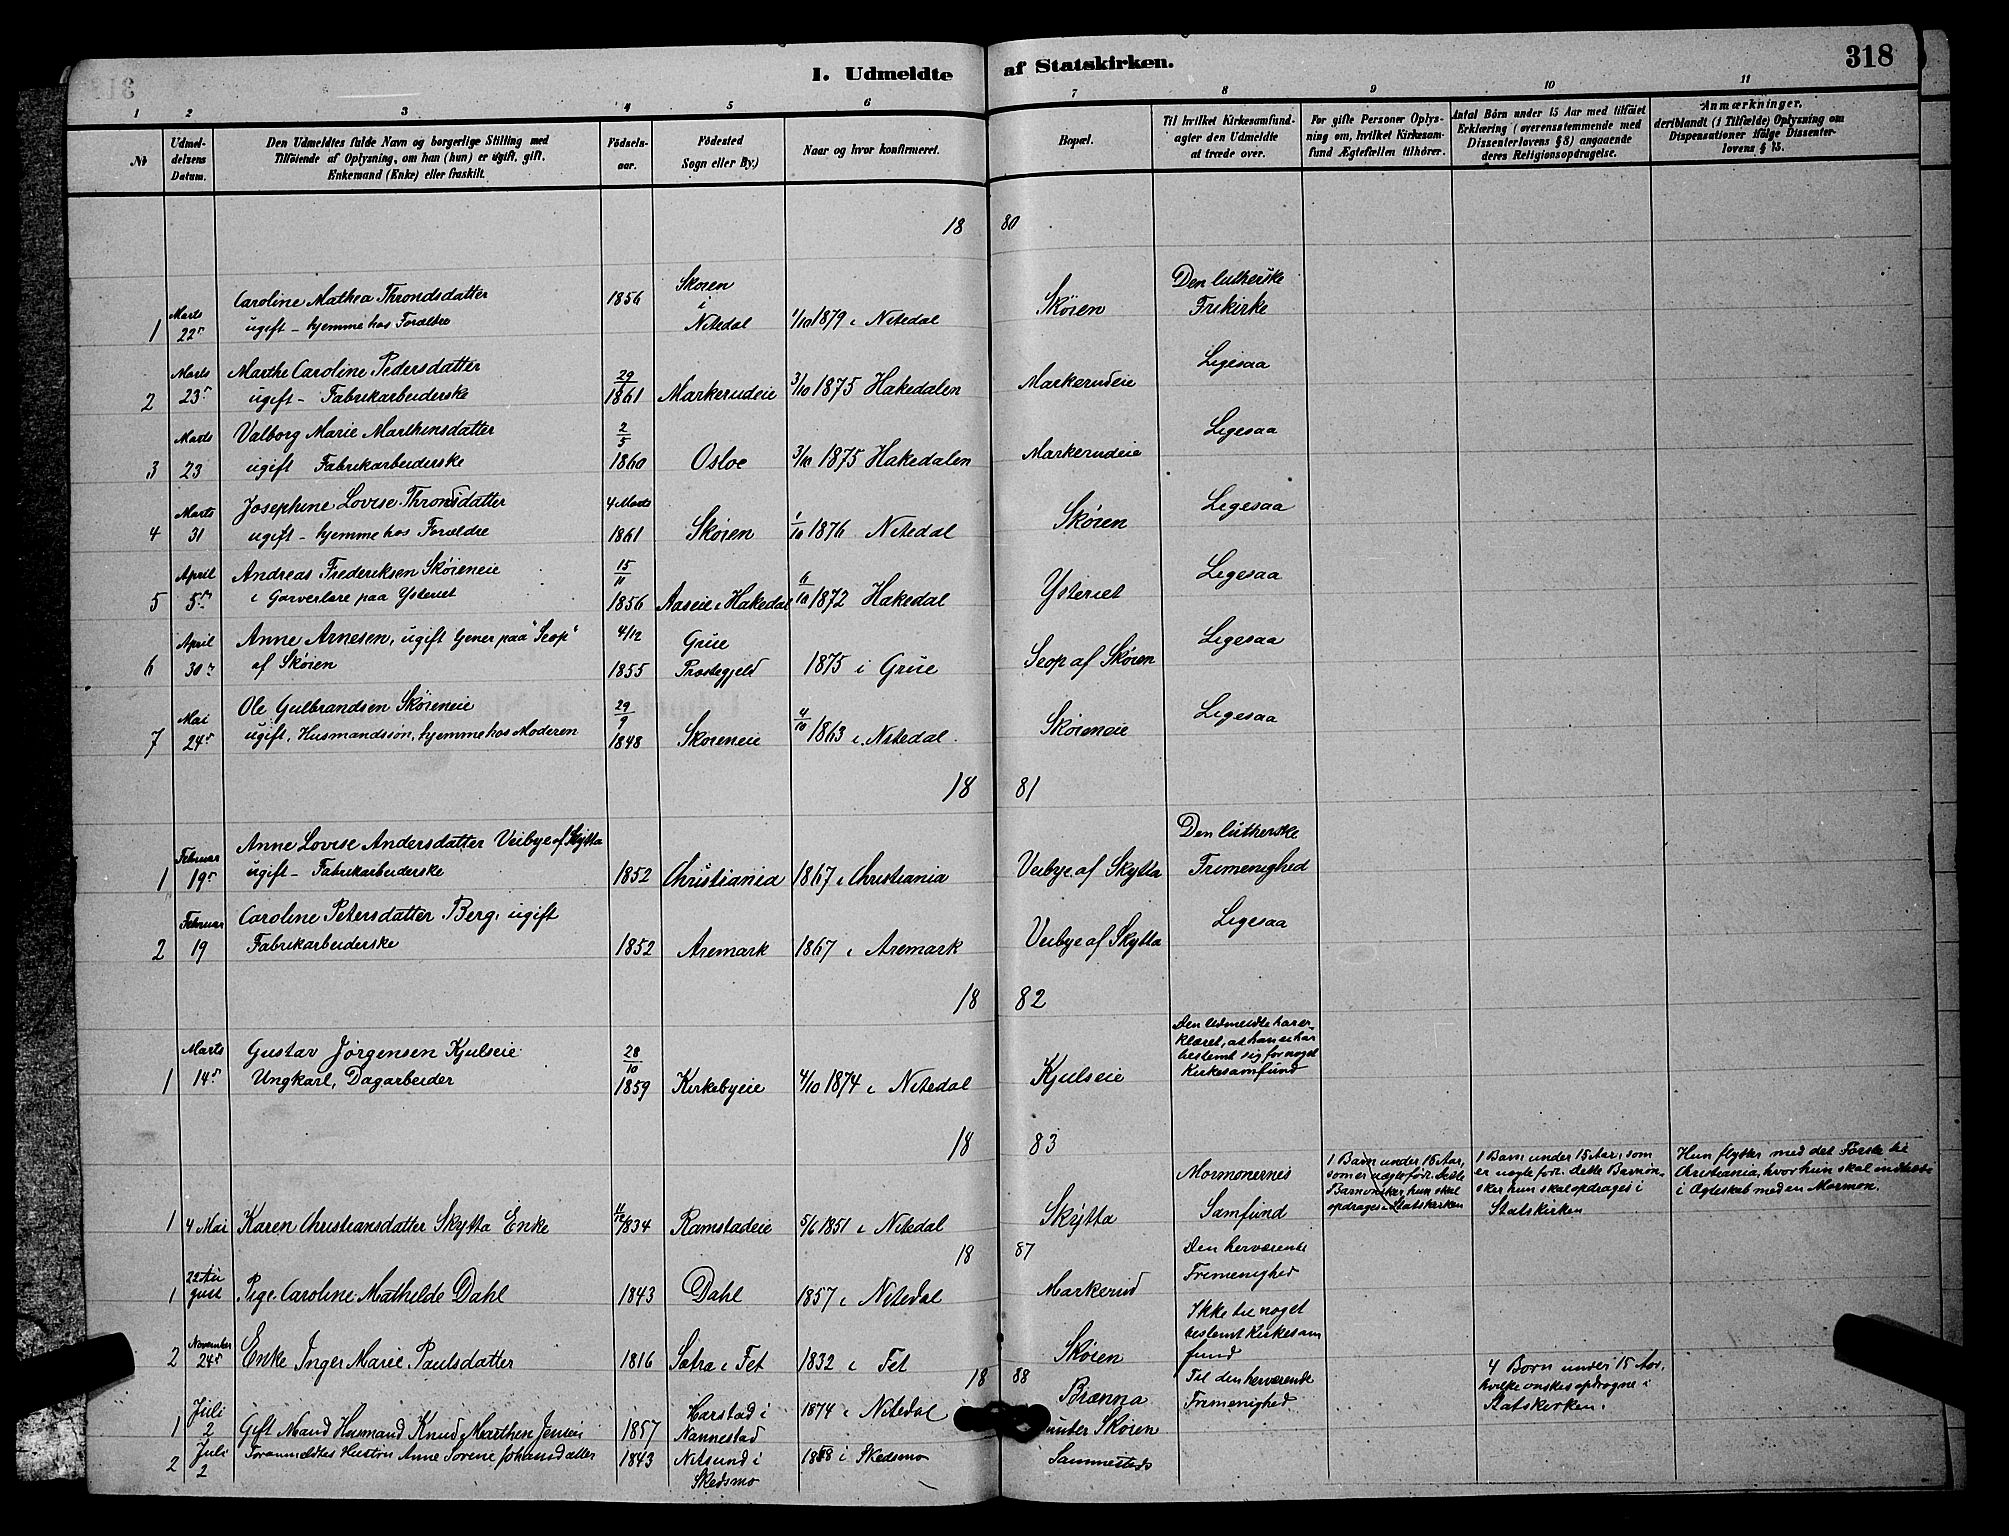 I. Udmeldte af Statskirken.
318
1 2 3 4 5 6 7 8 9 10 11
№
Udmeldelsens Datum.
Den Udmeldtes fulde Navn og borgerlige Stilling med
Tilføiende af Oplysning, om han (hun) er ugift, gift,
Enkemand (Enke) eller fraskilt.
Fødselsaar.
Fødested
Sogn eller By.)
Naar og hvor konfirmeret.
Bopæl.
Til hvilket Kirkesamfund
agter den Udmeldte
at træde over.
For gifte Personer Oplysning
om, hvilket Kirkesamfund
Ægtefællen tilhører.
Antal Børn under 15 Aar med tilføiet
Erklæring (overensstemmende med
Dissenterlovens § 8) angaaende
deres Religionsopdragelse.
Anmærkninger,
deriblandt (i Tilfælde) Oplysning om
Dispensationer ifølge Dissenterlovens
§ 15.
18 80
Caroline Mathea Throndsdatter 1856 Skøien i Den lutherske
1 Marts 22de ugift - hjemme hos Forældre Nitedal 1/10 1879 i Nitedal Skøien Frikirke
Marts Marthe Caroline Pedersdatter 29 Ligesaa
2 23de ugift - Fabrikarbeiderske 1861 Markerudeie 3/10 1875 Hakedalen Markerudeie
Marts Valborg Marie Marthinsdatter 2/5 Ligesaa
3 23 ugift Fabrikarbeiderske 1860 Osloe 3/10 1875 Hakedalen Markerudeie
Marts Josephine Lovise Throndsdatter 4 Marts Ligesaa
4 31 ugift - hjemme hos Forældre 1861 Skøien 1/10 1876 Nitedal Skøien
April Andreas Frederiksen Skøieneie 15/11 Ligesaa
5 5te i Garverlære paa Ysteriet 1856 Aaseie i Hakedal 6/10 1872 Hakedal Ysteriet
April Anne Arnesen, ugift paa "Seop" 4/12 Grue Ligesaa
6 30te af Skøien 1855 Præstegjeld 1875 i Grue Seop af Skøien
Mai Ole Gulbrandsen Skøieneie 29/9 Ligesaa
7 24de ugift, Husmandssøn, hjemme hos Moderen 1848 Skøieneie 4/10 1863 i Nitedal. Skøieneie
18 81
Februar Anne Lovise Andersdatter Veibye af Skytta Den lutherske
1 19de ugift - Fabrikarbeiderske 1852 Christiania 1867 i Christiania Veibye af Skytta Frimenighed
Februar Caroline Petersdatter Berg, ugift Ligesaa
2 19 Fabrikarbeiderske 1852 Aremark 1867 i Aremark Veibye af Skytta
18 82
Marts Gustav Jørgensen Kjulseie 28/10
1 14de Ungkarl, Dagarbeider 1859 Kirkebyeie 4/10 1874 i Nitedal Kjulseie
Den Udmeldte har erklæret,
at han ei har
bestemt sig for noget
Kirkesamfund
18 83
1 4 Mai Karen Christiansdatter Skytta Enke 1834 Ramstadeie 5/6 1851 i Nitedal Skytta
Mormonernes
Samfund
1 Barn under 15 Aar,
som er uægtefødt. Dette
Barn ønsker hun skal
opdrages i Statskirken
1 Barn under 15 Aar, som
er uægte født. Dette Barn ønsker
hun skal opdrages i
Statskirken
Hun flytter med det Første til
Christiania, hvor hun skal indtræde
i Ægteskab med en Mormon.
18 87
1 22 August Pige Caroline Mathilde Dahl 1843 Dahl 1857 i Nitedal Markerud
Den herværende
Frimenighed
2 November 24de Enke Inger Marie Paulsdatter 1816 Sætra i Fet 1832 i Fet Skøien
Ikke til noget
bestemt Kirkesamfund
18 88
1 Juli 2 Gift Mand Husmand Knud Marthin Jensen 1857 Harstad i Nannestad 1874 i Nitedal Brænna under Skøien
Til den herværende
Frimenighed
4 Børn under 15 Aar,
hvilke ønskes opdragne i
Statskirken.
2 Juli 2 Foranmeldtes Hustru Anne Sørine Johansdatter 1843 Nitsund i Skedsmo 1858 i Skedsmo Sammesteds